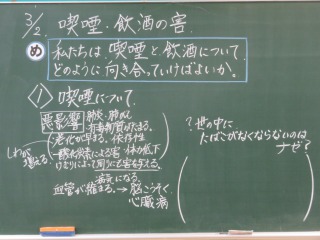 3/2. 喫煙・飲酒の害
め 私たちは、喫煙と飲酒について、
どのように向き合っていけばよいか。
① 喫煙について
悪影響
有害物質がたまる。
老化が早まる。依存性
しわが
増える
体力低下
けむりによって周りにも害を与える。
病気になる。
血管が縮まる。→脳こうそく
心臓病
?世の中に
たばこがなくならないのは
ナゼ?